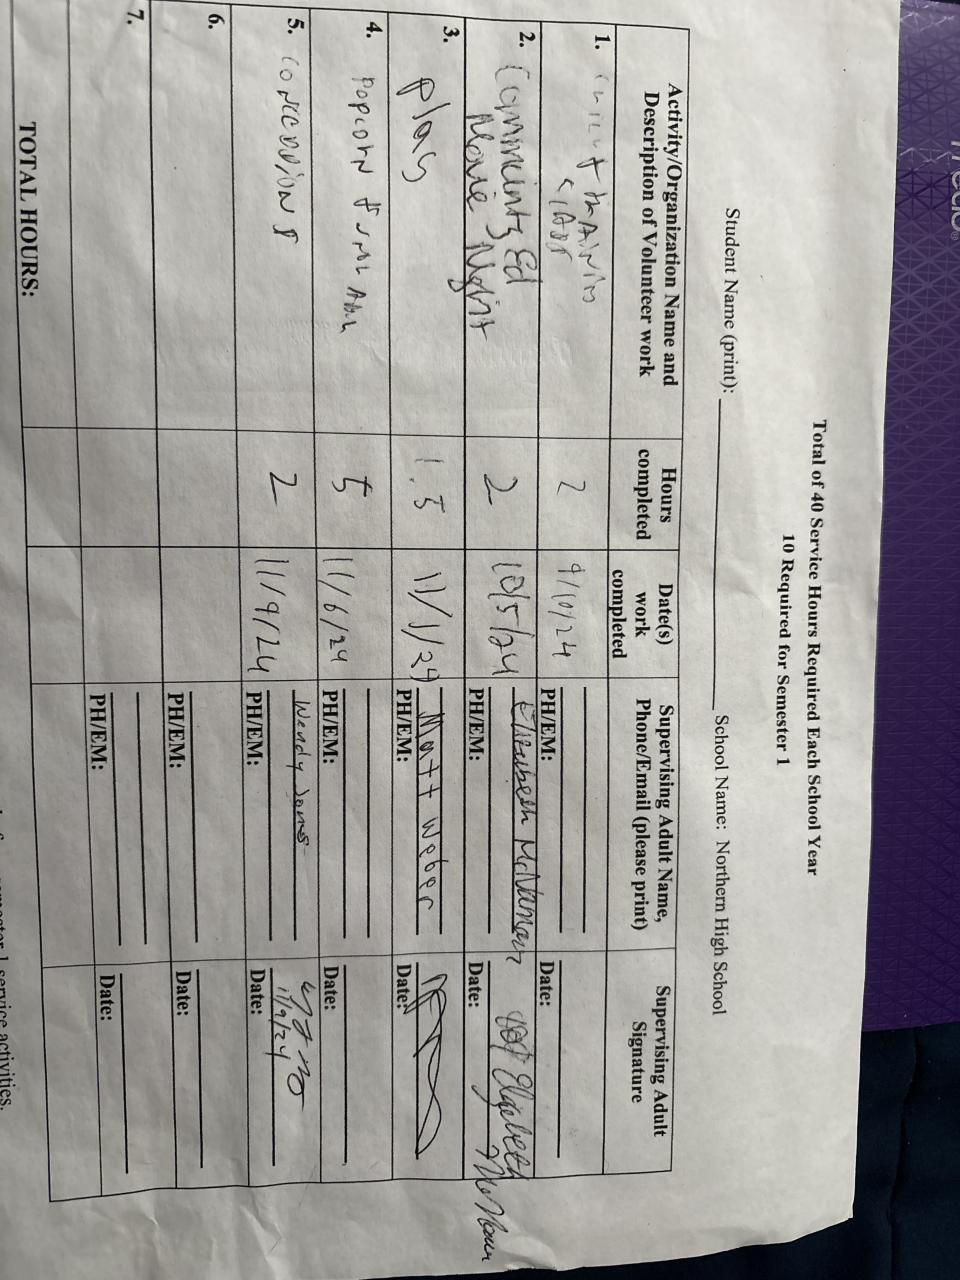 Total of 40 Service Hours Required Each School Year
10 Required for Semester 1
Student Name (print): School Name: Northern High School
Activity/Organization Name and
Description of Volunteer work
Hours
completed
Date(s)
work
completed
Supervising Adult Name,
Phone/Email (please print)
Supervising Adult
Signature
1.
2
9/10/24
PH/EM:
Date:
2. Community Ed
Movie Night
2
10/5/24
Elizabeth McNamara
PH/EM:
Elizabeth
Date:
3. play
1.5
11/1/24
Matt Weber
PH/EM:
Date:
4. popcorn
5
11/6/24
PH/EM:
Date:
5. concessions
2
11/9/24
Wendy Jones
PH/EM:
11/9/24
Date:
6.
PH/EM:
Date:
7.
PH/EM:
Date:
TOTAL HOURS:
semester 1 service activities.